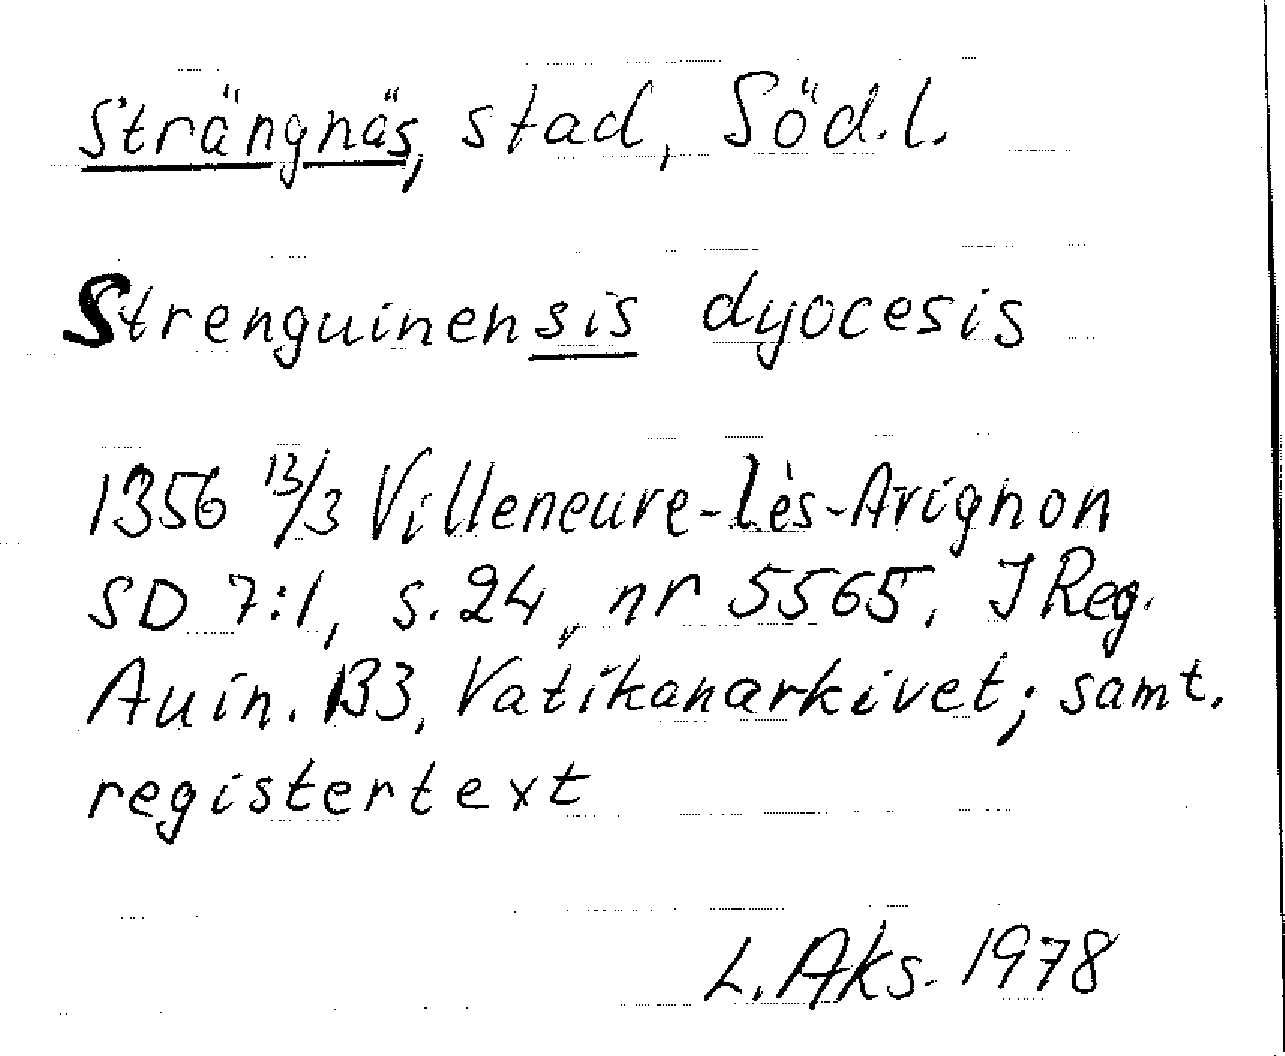 Strängnäs, stad, Söd.l.
Strenguinensis dyocesis
1356 13/3 Villeneuve-lès-Avignon
SD 7:1, s. 24, nr 5565. I Reg.
Auin. 133, Vatikanarkivet; samt.
registertext
L. Aks. 1978